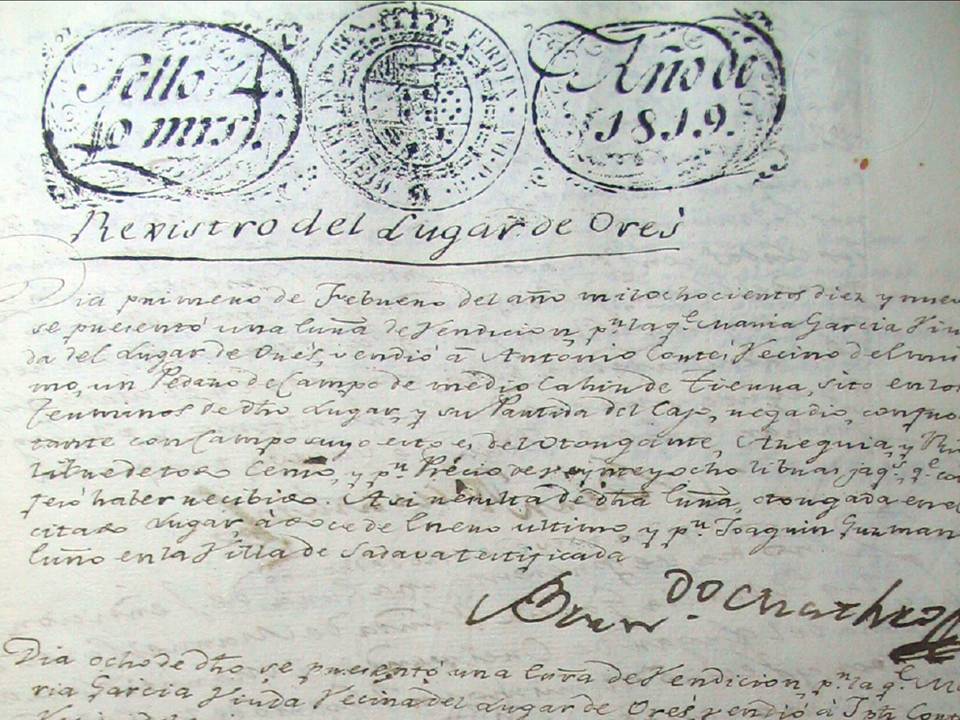 Sello 4.
40 mrs.
Año de
1819.
Rexistro del Lugar de Orés
Dia primero de Febrero del año mil ochocientos diez y nuev
se presentó una luña de Vendicion, pr. la ql. Maria Garcia Viu
da del Lugar de Orés, vendió à Antonio Conte, Vecino del mi
mo, un Pedazo de Campo de medio Cahiz de Tierra, sito en los
Terminos de dho Lugar, y su Partida del Cajo, regadio, confro
tante con Campo suyo esto es, del Otorgante, Azequia, y
libre de todo Censo, y pr. Precio de veynte y ocho libras jaqs. ql. con
fesó haber recibido. Asi resulta de dha luña, otorgada en el
citado Lugar, à doce de Enero ultimo, y pr. Joaquin Guzman
luño en la Villa de Sadava testificada
Dia ocho de dho se presentó una luña de Vendicion, pr. la ql. Ma
ria Garcia Viuda Vecina del Lugar de Orés, vendió à